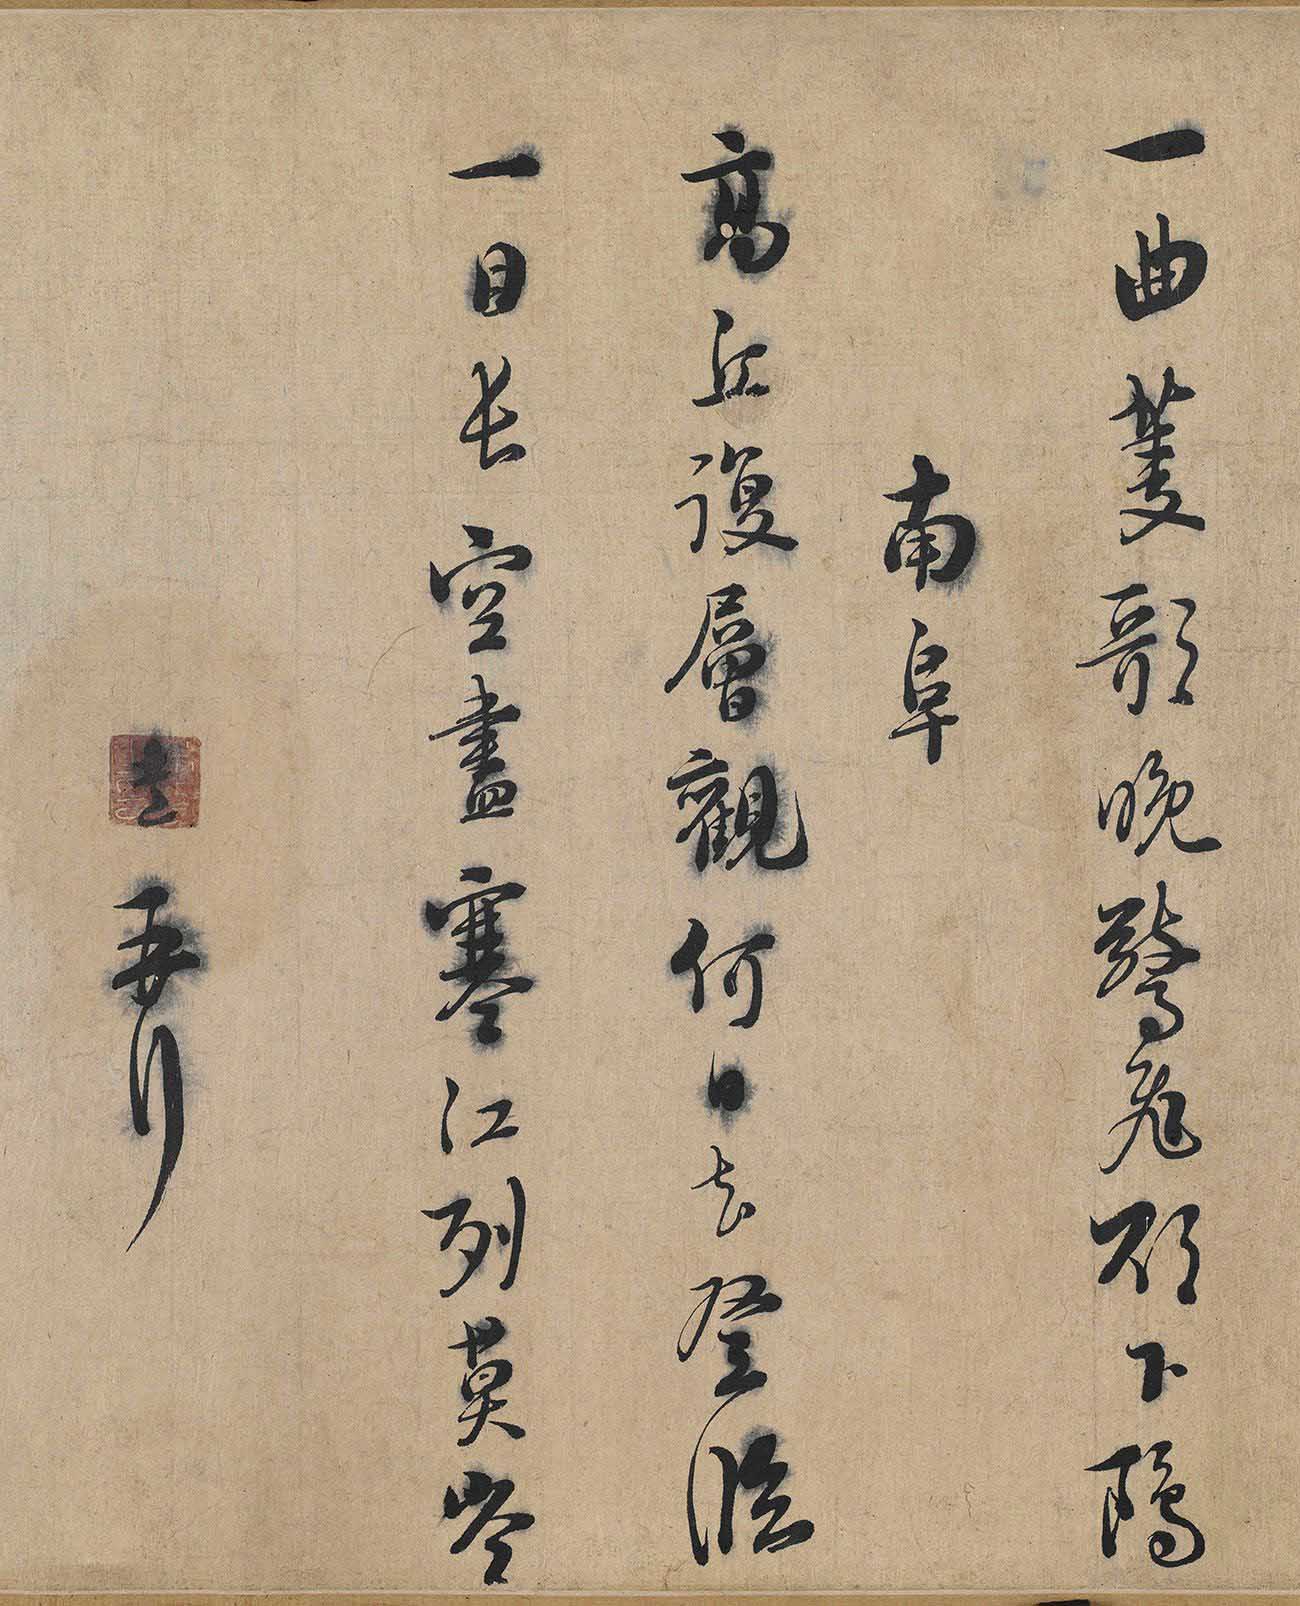 一曲菱歌晚驚飛欲下鷗
南阜
高丘復層觀何日去登臨
一目長空盡寒江列莫岑
熹再拜